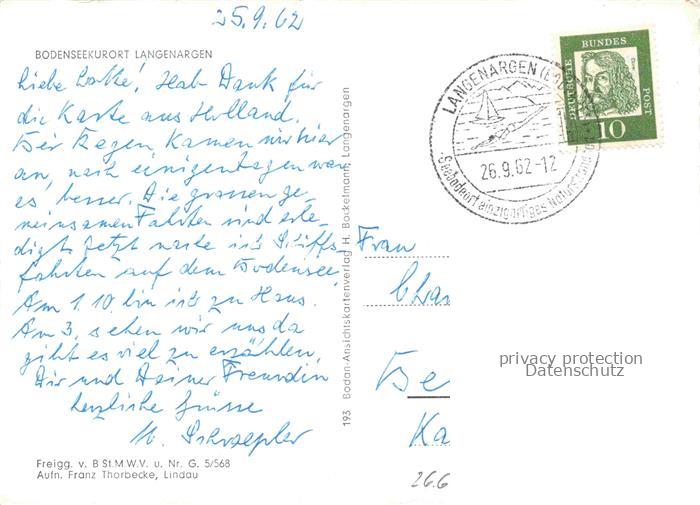 25.9.62
BODENSEEKURORT LANGENARGEN
Liebe Lotte! Hab Dank für
die Karte aus Holland.
Bei Regen kamen wir hier
an, nach einigen Tagen war
es besser. Die grossen ge-
meinsamen Fahrten sind erle-
digt. Jetzt mache ich Schiffs-
fahrten auf dem Bodensee.
Am 1.10. bin ich zu Haus.
Am 3. sehen wir uns da
gibt es viel zu erzählen.
Dir und Deiner Freundin
herzliche Grüsse
Freigg. v. B St.M W.V. u. Nr. G. 5/568
Aufn. Franz Thorbecke, Lindau
193 Bodan-Ansichtskartenverlag H. Bockelmann, Langenargen
LANGENARGEN (BOD
26.9.62-12
Seebadeort einzigartiges Naturstrand
DEUTSCHE
BUNDES
POST
10
Frau
Char
Be
Ka
26.6
privacy protection
Datenschutz